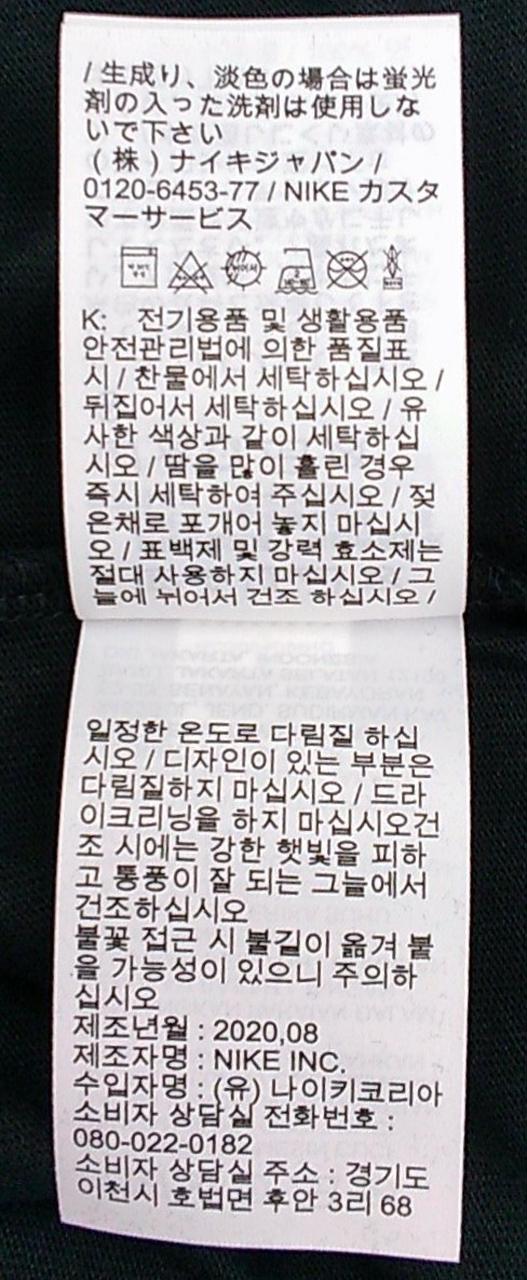 / 生成り、淡色の場合は蛍光
剤の入った洗剤は使用しな
いで下さい
(株)ナイキジャパン /
0120-6453-77 / NIKE カスタ
マーサービス
K: 전기용품 및 생활용품
안전관리법에 의한 품질표
시 / 찬물에서 세탁하십시오 /
뒤집어서 세탁하십시오 / 유
사한 색상과 같이 세탁하십
시오 / 땀을 많이 흘린 경우
즉시 세탁하여 주십시오 / 젖
은채로 포개어 놓지 마십시
오 / 표백제 및 강력 효소제는
절대 사용하지 마십시오 / 그
늘에 뉘어서 건조 하십시오 /
일정한 온도로 다림질 하십
시오 / 디자인이 있는 부분은
다림질하지 마십시오 / 드라
이크리닝을 하지 마십시오건
조 시에는 강한 햇빛을 피하
고 통풍이 잘 되는 그늘에서
건조하십시오
불꽃 접근 시 불길이 옮겨 붙
을 가능성이 있으니 주의하
십시오
제조년월 : 2020,08
제조자명 : NIKE INC.
수입자명 : (유) 나이키코리아
소비자 상담실 전화번호 :
080-022-0182
소비자 상담실 주소 : 경기도
이천시 호법면 후안 3리 68